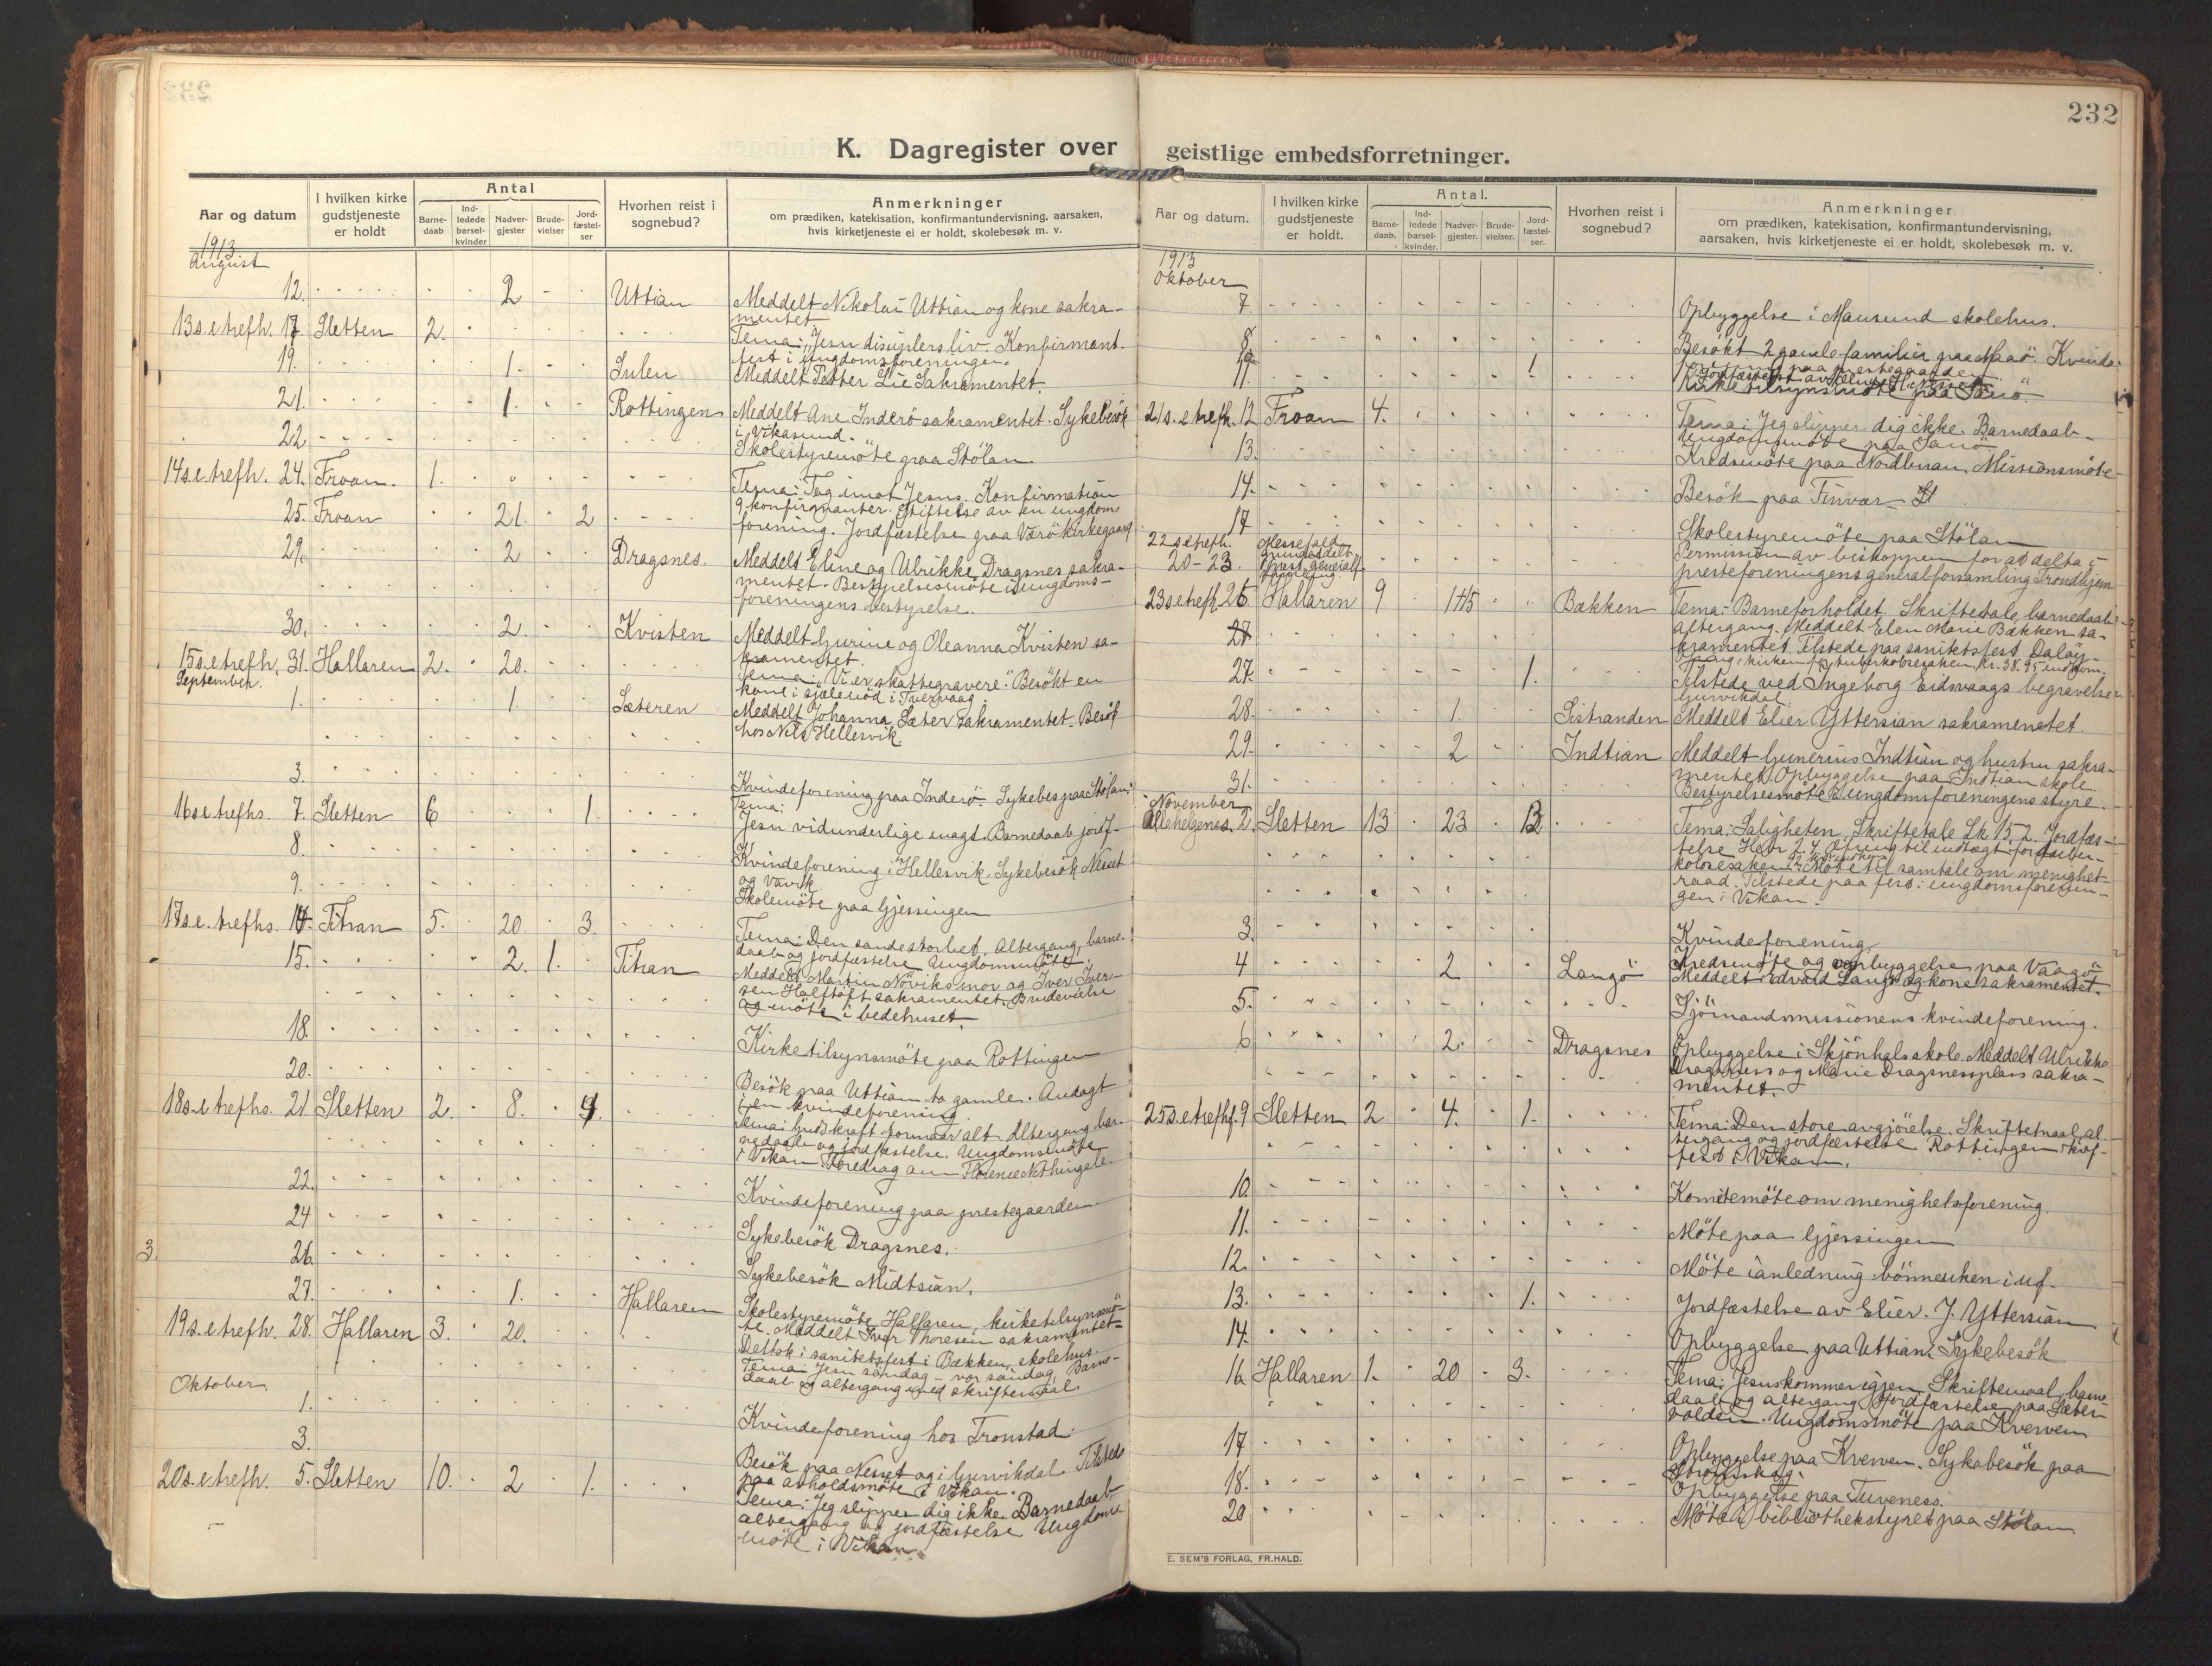 232
K. Dagregister over geistlige embedsforretninger.
Aar og datum
I hvilken kirke gudstjeneste er holdt
Antal
Barne-daab
Ind-ledede barsel-kvinder
Nadver-gjester
Brude-vielser
Jord-fæstel-ser
Hvorhen reist i sognebud?
Anmerkninger
om prædiken, katekisation, konfirmantundervisning, aarsaken,
hvis kirketjeneste ei er holdt, skolebesøk m. v.
1913
August
12. 2 Uttian Meddelt Nikolai Uttian og kone sakra-
mentet
13 s. e. trefh. 17 Sletten 2. Tema: "Jesu disiplers liv. Konfirmant-
fest i ungdomsforeningen.
19. 1. Sulen Meddelt Petter Lie Sakramentet.
21. 1. Rottingen Meddelt Ane Inderö sakramentet. Sykebesök
i Vikasund.
22 Skolestyremöte paa Stölan
14 s. e. trefh. 24. Froan. 1. Tema: Tag imot Jesus. Konfirmation
9 konfirmanter. Stiftelse av en ungdoms
25. Froan 21. 2 forening. Jordfæstelse paa Værö kirkegaard
29. 2 Dragsnes. Meddelt Eline og Ulrikke Dragsnes sakra-
mentet. Bestyrelsesmöte i ungdoms-
foreningens bestyrelse.
30. 2. Kvisten Meddelt Gurine og Oleanna Kvisten sa-
kramentet.
15 s. e. trefh. 31. Hallaren 2. 20. Tema: "Vi er skattegravere." Besökt en
kone i sjælenöd i Tvervaag
September.
1. 1. Sæteren Meddelt Johanna Sæter sakramentet. Besök
hos Nils Hellesvik.
3. Kvindeforening paa Inderö. Sykebes. paa Stölan.
16 s. e. trefhs. 7. Sletten 6 1. Tema:
Jesu vidunderlige magt. Barnedaab jordf-
8. Kvindeforening i Hellesvik. Sykebesök Nesset
og Vavik
9. Skolemöte paa Gjessingen
17 s. e. trefhs. 14. Titran 5. 20 3. Tema: Den sande storhet. Altergang, barne-
daab og jordfæstelse. Ungdomsmöte.
15. 2. 1. Titran Meddelt Martin Növiks mor og Iver Iver-
sen Halftoft sakramentet. Brudevielse
og möte i bedehuset.
18. Kirketilsynsmöte paa Rottingen
20. Besök paa Uttian to gamle. Andagt
i en kvindeforening.
18 s. e. trefhs. 21 Sletten 2. 8. 4. Tema: Guds kraft formaar alt. Altergang bar-
nedaab og jordfæstelse. Ungdomsmöte
i Vikan. Foredrag om Florence Nithingale.
22. Kvindeforening paa prestegaarden.
24 Sykebesök Dragsnes.
3. 26. Sykebesök Midtsian.
27. 1. Hallaren Skolestyremöte Hallaren, kirketilsynsmö-
te. Meddelt Iver Thoresen sakramentet-
19 s. e. trefh. 28. Hallaren 3. 20. Deltok i sanitetsfest i Bækken, skolehus.
Tema: Jesu söndag – vor söndag. Barne-
daab og altergang med skriftemaal.
Oktober
1. Kvindeforening hos Fronstad
3. Besök paa Nesset og i Gurvikdal. Tilstede
paa avholdsmöte i Vikan.
20 s. e. trefh. 5. Sletten 10. 2 1. Tema: Jeg slipper dig ikke. Barnedaab
altergang og jordfæstelse Ungdoms-
möte i Vikan.
Aar og datum.
I hvilken kirke gudstjeneste er holdt.
Antal.
Barne-daab.
Ind-ledede barsel-kvinder.
Nadver-gjester.
Brude-vielser.
Jord-fæstel-ser.
Hvorhen reist i sognebud?
Anmerkninger
om prædiken, katekisation, konfirmantundervisning,
aarsaken, hvis kirketjeneste ei er holdt, skolebesøk m. v.
1913
Oktober
7 Opbyggelse i Mausund skolehus.
8. Besökt 2 gamle familier paa Maaö. Kvinde-
forening paa prestegaarden
11. 1 Kirketilsynsmöte paa Sanö.
21 s. e. trefh. 12 Froan 4. Tema: Jeg slipper dig ikke. Barnedaab-
Ungdomsmöte paa Sanö
13. Kredsmöte paa Nordbuan. Missionsmöte-
14. Besök paa Finvær
17 Skolestyremöte paa Stölan
22 s. e. trefh. 20–23. Messefald Permission av biskoppen for at delta i
presteforeningens generalforsamling Trondhjem
23 s. e. trefh. 26 Hallaren 9 145 Bækken Tema: Barneforholdet. Skriftetale, barnedaab
altergang. Meddelt Elen Marie Bækken sa-
27 kramentet. Tilstede paa sanitetsfest Daløy
i kirken for tuberkolosesaken, kr. 38.95 indkom.
27. 1. Tilstede ved Ingeborg Eidsvaags begravelse
Gurvikdal
28. 1. Sistranden Meddelt Elier Yttersian sakramenetet.
29. 2 Indtian Meddelt Gunerius Indtian og hustru sakra-
mentet. Opbyggelse paa Indtian skole.
31. Bestyrelsesmöte i ungdomsforeningens styre.
November
Allehelgens. 2. Sletten 13 23 12 Tema: Saligheten. Skriftetale Lk 15,2. Jordfæs-
telse Hebr 2.4. Ofring til indtægt for tuber-
kolosesaken. Möte til samtale om menighet-
raad. Tilstede paa fest i ungdomsforenin-
gen i Vikan.
3. Kvindeforening.
4 2 Langö Kredsmöte og opbyggelse paa Vaagö
Meddelt Edvard Langö og kone sakramentet.
5. Sjömandsmissionens kvindeforening.
6 2. Dragsnes Opbyggelse i Skjönhals skole. Meddelt Ulrikke
Dragsnes og Marie Dragsnesplass sakra-
mentet.
25 s. e. trefh. 9 Sletten 2 4. 1. Tema: Den store avgjörelse. Skriftemaal, al-
tergang og jordfæstelse. Rottingen kaf-
fest i Vikan.
10. Komitemöte om menighetsforening.
11. Möte paa Gjessingen
12. Möte i anledning bönneuken i uf.
13. 1. Jordfæstelse av Elier. J. Yttersian
14. Opbyggelse paa Uttian. Sykebesök
16 Hallaren 1. 20 3. Tema: Jesus kommer igjen. Skriftemaal, barne
daab og altergang. Jordfæstelse paa Sæter-
volden. Ungdomsmöte paa Kverven
17 Opbyggelse paa Kverven. Sykebesök paa
18. Opbyggelse paa Tuveness.
20 Möte i bibliothekstyret paa Stölan
E. SEM'S FORLAG, FR.HALD.